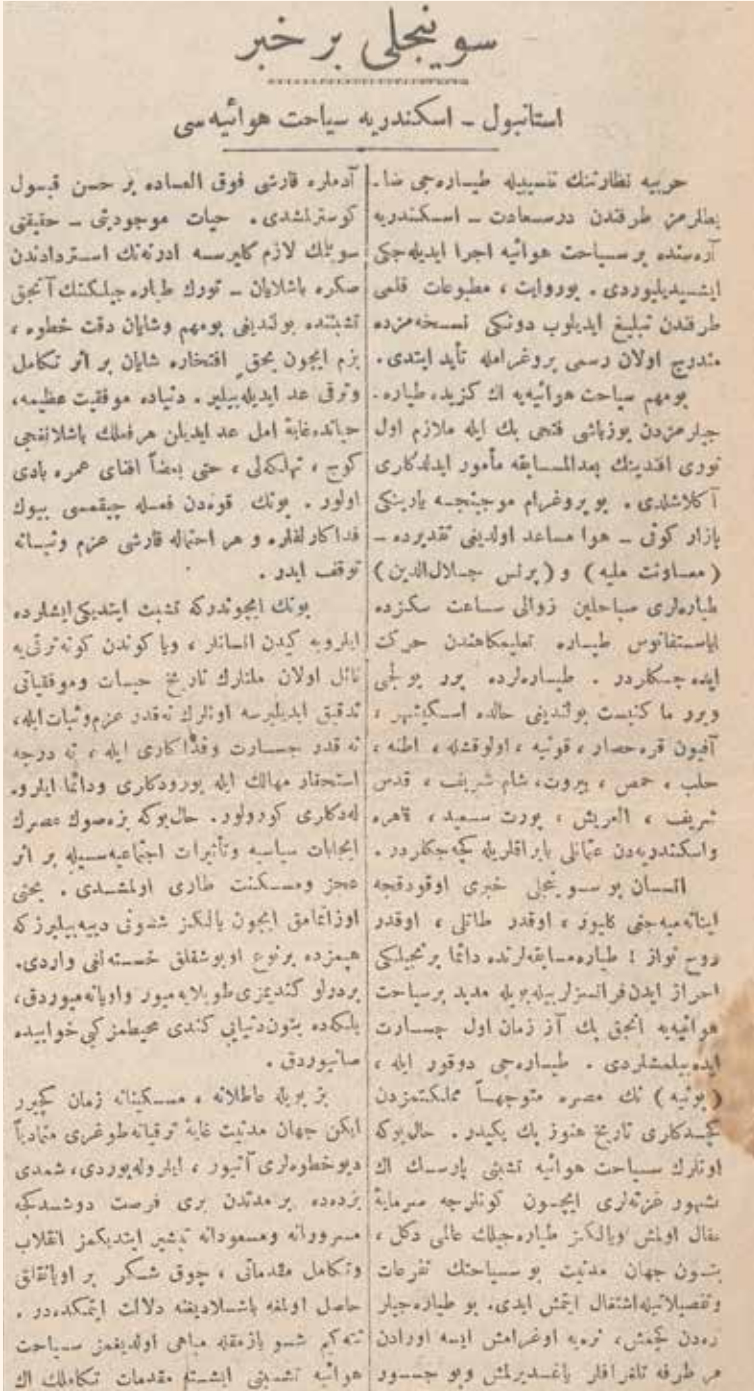 سوینجلی بر خبر
استانبول ـ اسکندریه سیاحت هوائیه‌سی
حربیه نظارتنك تنسیبیله طیاره‌جی ضا-
بطلرمز طرفندن درسعادت ـ اسکندریه
آره‌سنده بر سیاحت هوائیه اجرا ایدیله‌جکی
ایشیدیلیوردی . بوروایت ، مطبوعات قلمی
طرفندن تبلیغ ایدیلوب دونکی نسخه‌مزده
مندرج اولان رسمی پروغرامله تأید ایتدی .
بومهم سیاحت هوائیه‌یه اك کزیده طیاره-
جیلرمزدن یوزباشی فتحی بك ایله ملازم اول
نوری افندینك بعدالمسابقه مأمور ایدلدکاری
آکلاشلدی . بو پروغرام موجبنجه یارینکی
بازار کونی ـ هوا مساعد اولدیغی تقدیرده ـ
(معاونت ملیه) و (پرنس جلال‌الدین)
طیاره‌لری صباحلین زوالی ساعت سکزده
ایاستفانوس طیاره تعلیمکاهندن حرکت
ایده‌جکلردر . طیاره‌لرده برر یولجی
وبرر ماکنیست بولندیغی حالده اسکیشهر ،
آفیون قره‌حصار ، قونیه ، اولوقشله ، اطنه ،
حلب ، حمص ، بیروت ، شام شریف ، قدس
شریف ، العریش ، پورت سعید ، قاهره
واسکندریه‌دن عثمانلی بایراقلریله کچه‌جکلردر .
انسان بو سوینجلی خبری اوقودقجه
اینانه‌میه‌جغی کلیور ، اوقدر طاتلی ، اوقدر
روح نواز ! طیاره مسابقه‌لرنده دائما برنجیلکی
احراز ایدن فرانسزلر بیله بویله مدید بر سیاحت
هوائیه‌یه انجق پك آز زمان اول جسارت
ایده‌بیلمشلردی . طیاره‌جی دوقور ایله ،
(بونیه) نك مصره متوجهاً مملکتمزدن
کچدکاری تاریخ هنوز پك یکیدر . حال‌بوکه
اونلرك سیاحت هوائیه تشبثی پارسك اك
مشهور غزته‌لری ایچون کونلرجه سرمایهٔ
مقال اولمش ویالکز طیاره‌جیلك عالمی دکل ،
بتون جهان مدنیت بو سیاحتك تفرعات
وتفصیلاتیله اشتغال ایتمش ایدی. بو طیاره‌جیلر
نره‌دن کچمش، نره‌یه اوغرامش ایسه اورادن
هر طرفه تلغرافلر یاغدیرلمش وبو جسور
آدملره قارشی فوق العاده بر حسن قبول
کوسترلمشدی . حیات موجودیتی ـ حقیقتی
سویلمك لازم کلیرسه ادرنه‌نك استردادندن
صکره باشلایان ـ تورك طیاره‌جیلکنك آنجق
تشبثنده بولندیغی بومهم وشایان دقت خطوه ،
بزم ایچون بحق افتخاره شایان بر اثر تکامل
وترقی عد ایدیله‌بیلیر . دنیاده موفقیت عظیمه،
حیاتده غایهٔ امل عد ایدیلن هرفعلك باشلانغجی
کوج ، تهلکه‌لی ، حتی بعضاً افنای عمره بادی
اولور . بونك قوه‌دن فعله چیقممی بیوك
فداکارلقلره و هر احتماله قارشی عزم وثباته
توقف ایدر .
بونك ایچوندرکه تشبث ایتدیکی ایشلرده
ایلرویه کیدن انسانلر ، ویا کوندن کونه ترقی‌یه
نائل اولان ملتلرك تاریخ حیات وموفقیاتی
تدقیق ایدیلیرسه اونلرك نه‌قدر عزم وثبات ایله،
نه قدر جسارت وفداکاری ایله ، نه درجه
استحقار مهالك ایله یورودکاری ودائما ایلرو-
له‌دکاری کورولور. حال‌بوکه بزه صوك عصرك
ایجابات سیاسیه وتأثیرات اجتماعیه‌سیله بر اثر
عجز ومسکنت طاری اولمشدی . بحثی
اوزاتمامق ایچون یالکز شونی دییه‌بیلیرزکه
هپمزده برنوع اویوشقلق خسته‌لغی واردی.
بردرلو کندیمزی طوپلایه‌میور واویانه‌میوردق،
بلکه‌ده بتون دنیایی کندی محیطمز کبی خوابیده
صانیوردق .
بز بویله عاطلانه ، مسکینانه زمان کچیرر
ایکن جهان مدنیت غایهٔ ترقیاته طوغری متمادیاً
دیو خطوه‌لری آتیور ، ایلروله‌یوردی، شمدی
بزده‌ده بر مدتدن بری فرصت دوشدکجه
مسرورانه ومسعودانه تبشیر ایتدیکمز انقلاب
وتکامل مقدماتی ، چوق شکر بر اویانقلق
حاصل اولمغه باشلادیغنه دلالت ایتمکده‌در .
نته‌کیم شو یازمقله مباهی اولدیغمز سیاحت
هوائیه تشبثی ایشته مقدمات تکاملك اك